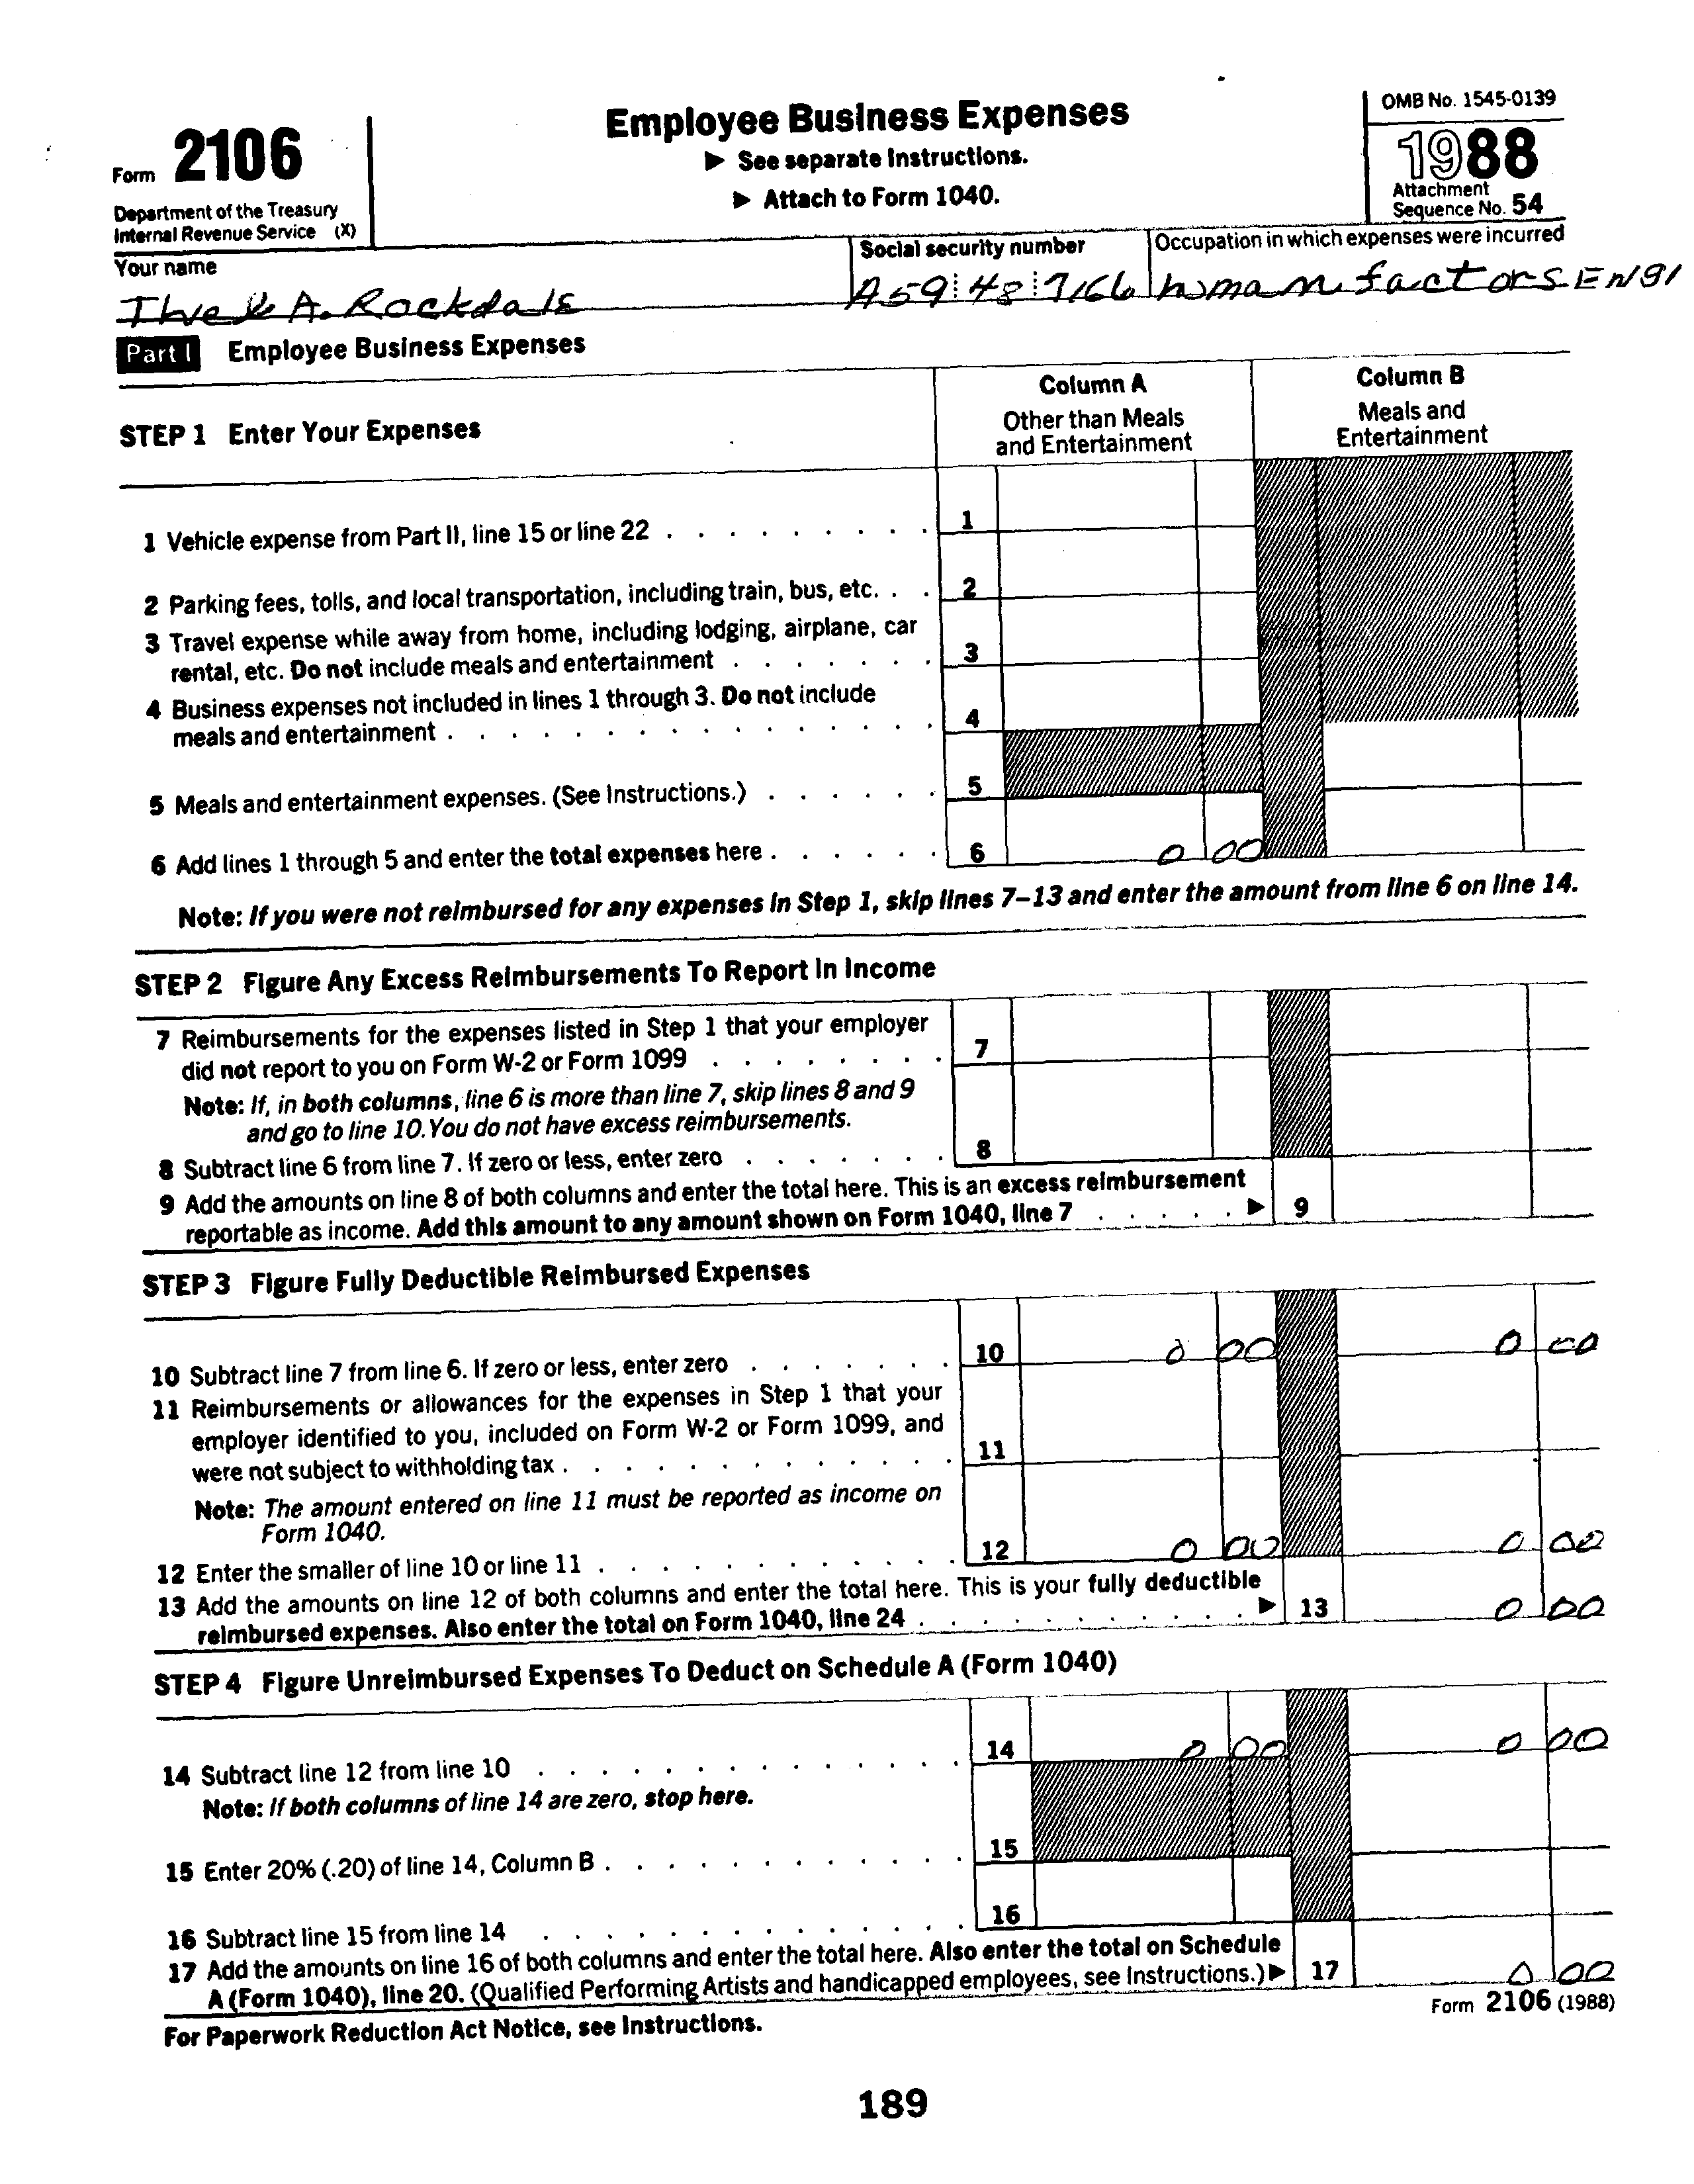 Form 2106
Department of the Treasury
Internal Revenue Service (X)
Employee Business Expenses
▶ See separate Instructions.
▶ Attach to Form 1040.
OMB No. 1545-0139
1988
Attachment
Sequence No. 54
Your name
Social security number
Occupation in which expenses were incurred
A. Rockdale
A59 48 7166
human factors ENgi
Part I Employee Business Expenses
STEP 1 Enter Your Expenses
Column A
Other than Meals
and Entertainment
Column B
Meals and
Entertainment
1 Vehicle expense from Part II, line 15 or line 22 . . . . . . . . . 1
2 Parking fees, tolls, and local transportation, including train, bus, etc. . . 2
3 Travel expense while away from home, including lodging, airplane, car
rental, etc. Do not include meals and entertainment . . . . . . . 3
4 Business expenses not included in lines 1 through 3. Do not include
meals and entertainment . . . . . . . . . . . . . . . . 4
5 Meals and entertainment expenses. (See Instructions.) . . . . . . 5
6 Add lines 1 through 5 and enter the total expenses here . . . . . . 6 0 00
Note: If you were not reimbursed for any expenses in Step 1, skip lines 7–13 and enter the amount from line 6 on line 14.
STEP 2 Figure Any Excess Reimbursements To Report In Income
7 Reimbursements for the expenses listed in Step 1 that your employer
did not report to you on Form W-2 or Form 1099 . . . . . . . . 7
Note: If, in both columns, line 6 is more than line 7, skip lines 8 and 9
and go to line 10. You do not have excess reimbursements.
8 Subtract line 6 from line 7. If zero or less, enter zero . . . . . . . 8
9 Add the amounts on line 8 of both columns and enter the total here. This is an excess reimbursement
reportable as income. Add this amount to any amount shown on Form 1040, line 7 . . . . . ▶ 9
STEP 3 Figure Fully Deductible Reimbursed Expenses
10 Subtract line 7 from line 6. If zero or less, enter zero . . . . . . . 10 0 00 0 00
11 Reimbursements or allowances for the expenses in Step 1 that your
employer identified to you, included on Form W-2 or Form 1099, and
were not subject to withholding tax . . . . . . . . . . . . . 11
Note: The amount entered on line 11 must be reported as income on
Form 1040.
12 Enter the smaller of line 10 or line 11 . . . . . . . . . . . . 12 0 00 0 00
13 Add the amounts on line 12 of both columns and enter the total here. This is your fully deductible
reimbursed expenses. Also enter the total on Form 1040, line 24 . . . . . . . . . . . ▶ 13 0 00
STEP 4 Figure Unreimbursed Expenses To Deduct on Schedule A (Form 1040)
14 Subtract line 12 from line 10 . . . . . . . . . . . . . . 14 0 00 0 00
Note: If both columns of line 14 are zero, stop here.
15 Enter 20% (.20) of line 14, Column B . . . . . . . . . . . . 15
16 Subtract line 15 from line 14 . . . . . . . . . . . . . . 16
17 Add the amounts on line 16 of both columns and enter the total here. Also enter the total on Schedule
A (Form 1040), line 20. (Qualified Performing Artists and handicapped employees, see Instructions.) ▶ 17 0 00
For Paperwork Reduction Act Notice, see Instructions.
Form 2106 (1988)
189